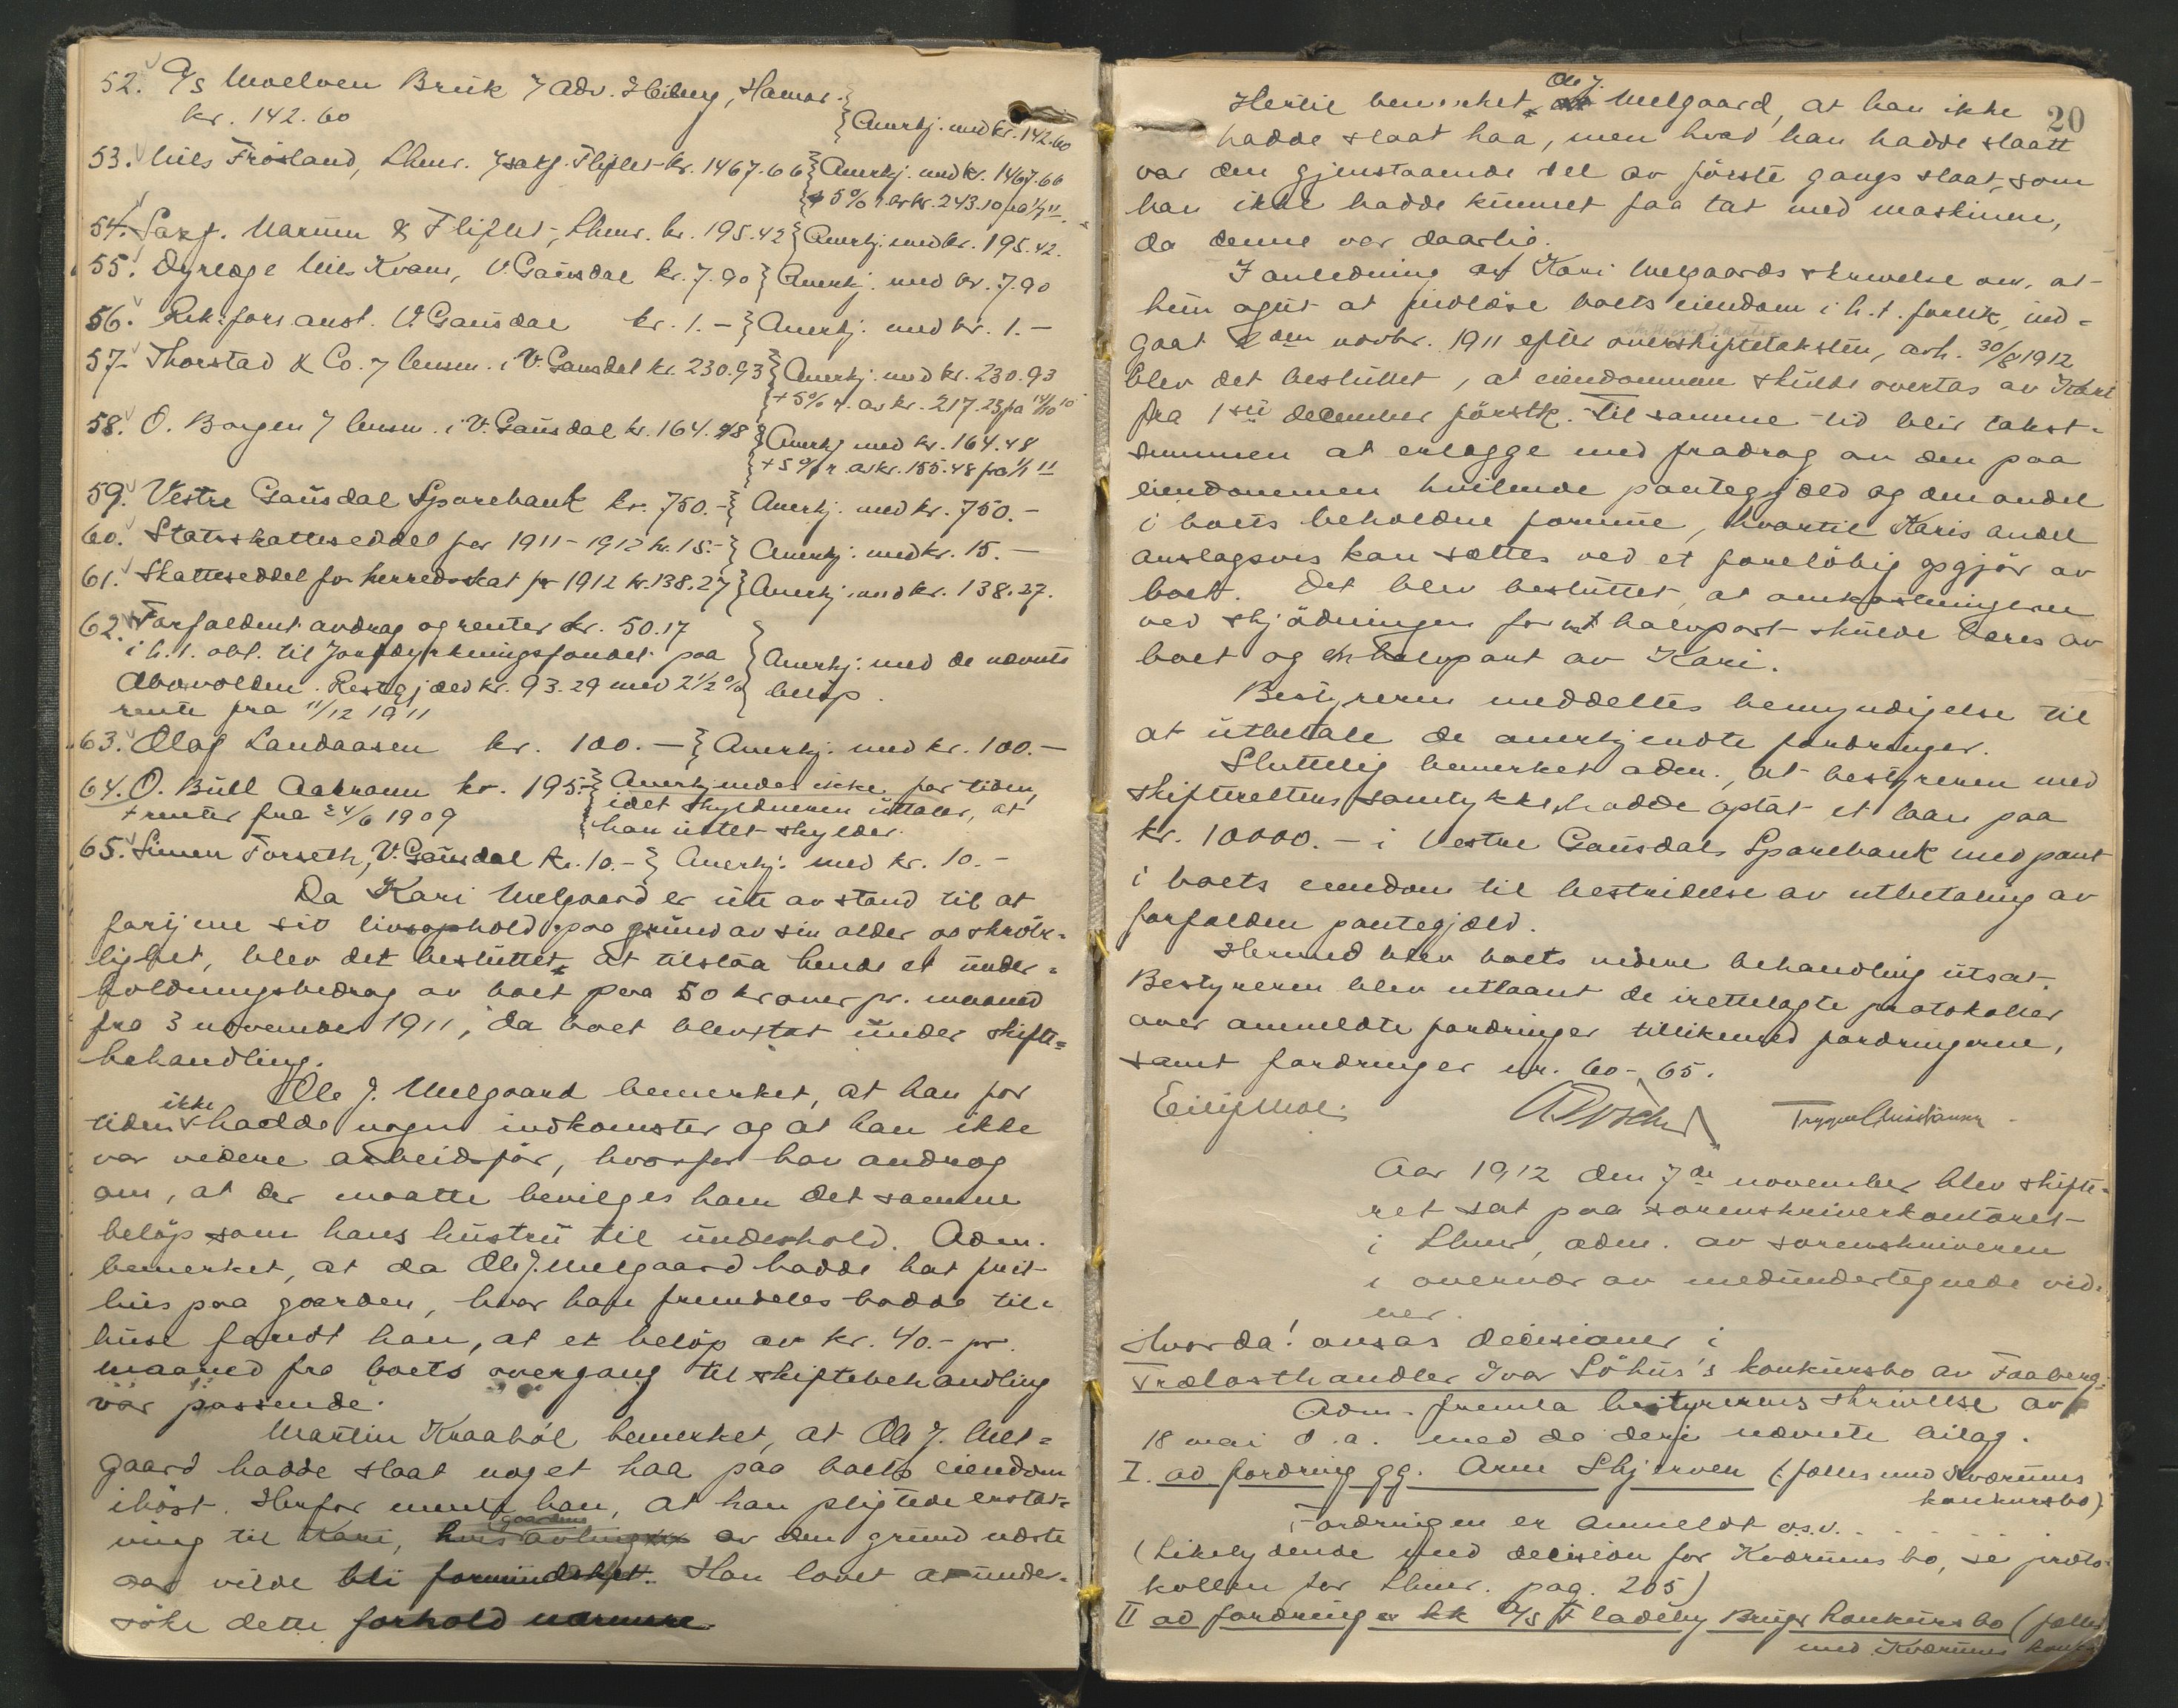 52. A/S Moelven Bruk / Adv. Heiberg, Hamar.
kr. 142.60 } Anerkj. med kr. 142.60
53. Nils Frösland, Lhmr. / sakf. Fliflet kr. 1467.66 } Anerkj. med kr. 1467.66
+ 5% r. av kr. 243.10 fra 1/7 11.
54. Sakf. Marum & Fliflet, Lhmr. kr. 195.42 } Anerkj. med kr. 195.42.
55. Dyrlæge Nils Kvam, V. Gausdal kr. 7.90 } Anerkj. med kr. 7.90
56. Rek: fors anst. V. Gausdal kr. 1.- } Anerkj. med kr. 1.-
57. Thorstad & Co. / lensm. i V. Gausdal kr. 230.93 } Anerkj. med kr. 230.93
+ 5% r. av kr. 217.23 fra 14/10 10
58. O. Borgen / lensm. i V. Gausdal kr. 164.48 } Anerkj med kr. 164.48
+ 5% r. av kr. 155.48 fra 1/1 11
59. Vestre Gausdal Sparebank kr. 750.- } Anerkj. med kr. 750.-
60. Statsskatteseddel for 1911-1912 kr. 15.- } Anerkj. med kr. 15.-
61. Skatteseddel for herredsskat for 1912 kr. 138.27 } Anerkj. med kr. 138.27.
62. Forfaldent avdrag og renter kr. 50.17
i h. t. obl. til Jorddyrkningsfondet paa } Anerkj. med de nævnte
Restgjæld kr. 93.29 med 2 1/2 % } beløp.
rente fra 11/12 1911
63. Olaf Landaasen kr. 100.- } Anerkj. med kr. 100.-
64. O. Bull Aakrann kr. 195.- } Anerkjendes ikke for tiden,
+ renter fra 24/6 1909 } idet skyldneren uttaler, at
han intet skylder.
65. Simen Forseth, V. Gausdal kr. 10.- } Anerkj. med kr. 10.-
Da Kari Melgaard er ute av stand til at
fortjene sit livsophold paa grund av sin alder og skrøbe-
lighet, blev det besluttet, at tilstaa hende et under-
holdningsbidrag av boet paa 50 kroner pr. maaned
fra 3 november 1911, da boet blev tat under skifte-
behandling.
Ole J. Melgaard bemerket, at han for
tiden ikke hadde nogen indkomster og at han ikke
var videre arbeidsfør, hvorfor han androg
om, at der maatte bevilges ham det samme
beløp som hans hustru til underhold. Adm.
bemerket, at da Ole J. Melgaard hadde hat frit
hus paa gaarden, hvor han fremdeles hadde til-
huse fandt han, at et beløp av kr. 40.- pr.
maaned fra boets overgang til skiftebehandling
var passende.
Martin Kraabøl bemerket, at Ole J. Mel-
gaard hadde slaat noget haa paa boets eiendom
ihøst. Herfor mente han, at han pligtede erstat-
ning til Kari, hvis gaardens avling av den grund næste
aar vilde bli formindsket. Han lovet at under-
søke dette forhold nærmere.
20
Hertil bemerket Ole J. Melgaard, at han ikke
hadde slaat haa, men hvad han hadde slaatt
var den gjenstaaende del av første gangs slaat, som
han ikke hadde kunnet faa tat med maskinen,
da denne var daarlig.
I anledning af Kari Melgaards skrivelse om, at
hun agtet at indløse boets eiendom i h. t. forlik, ind-
gaat 2den novbr. 1911 efter overskiftetaksten, avh. 30/8 1912
blev det besluttet, at eiendommen skulde overtas av Kari
fra 1ste december førstk. Til samme tid blir takst-
summen at erlægge med fradrag av den paa
eiendommen hvilende pantegjæld og den andel
i boets beholdne formue, hvortil Karis andel
anslagsvis kan sættes ved et foreløbig opgjør av
boet. Det blev besluttet, at omkostningerne
ved skjødningen for en halvpart skulde bæres av
boet og en halvpart av Kari.
Bestyreren meddeltes bemyndigelse til
at utbetale de anerkjendte fordringer.
Sluttelig bemerket adm., at bestyreren med
skifterettens samtykke hadde optat et laan paa
kr. 10000.- i Vestre Gausdals Sparebank med pant
i boets eiendom til bestridelse av utbetaling av
forfalden pantegjæld.
Hermed blev boets videre behandling utsat.
Bestyreren blev utlaant de irettelagte protokoller
over anmeldte fordringer tillikemed fordringerne,
samt fordringer nr. 60-65.
Eilif Moe. Trygve Christiansen
Aar 1912 den 7de november blev skifte-
ret sat paa sorenskriverkontoret
i Lhmr, adm. av sorenskriveren
i overvær av medundertegnede vid-
ner.
Hvorda! avsas decisioner i
Trælasthandler Ivar Löhus's konkursbo av Faaberg.
Adm. fremla bestyrerens skrivelse av
18 mai d. a. med de deri nævnte bilag.
I. ad fordring gg. Arne Skjerven (: fælles med Kværums
konkursbo)
Fordringen er anmeldt o.s.v. . . . . .
(Likelydende med decision for Kværums bo, se proto-
kollen for Lhmr. pag. 205)
II ad fordring kk A/S Fladeby Brugs konkursbo (fælles
med Kværums konk.